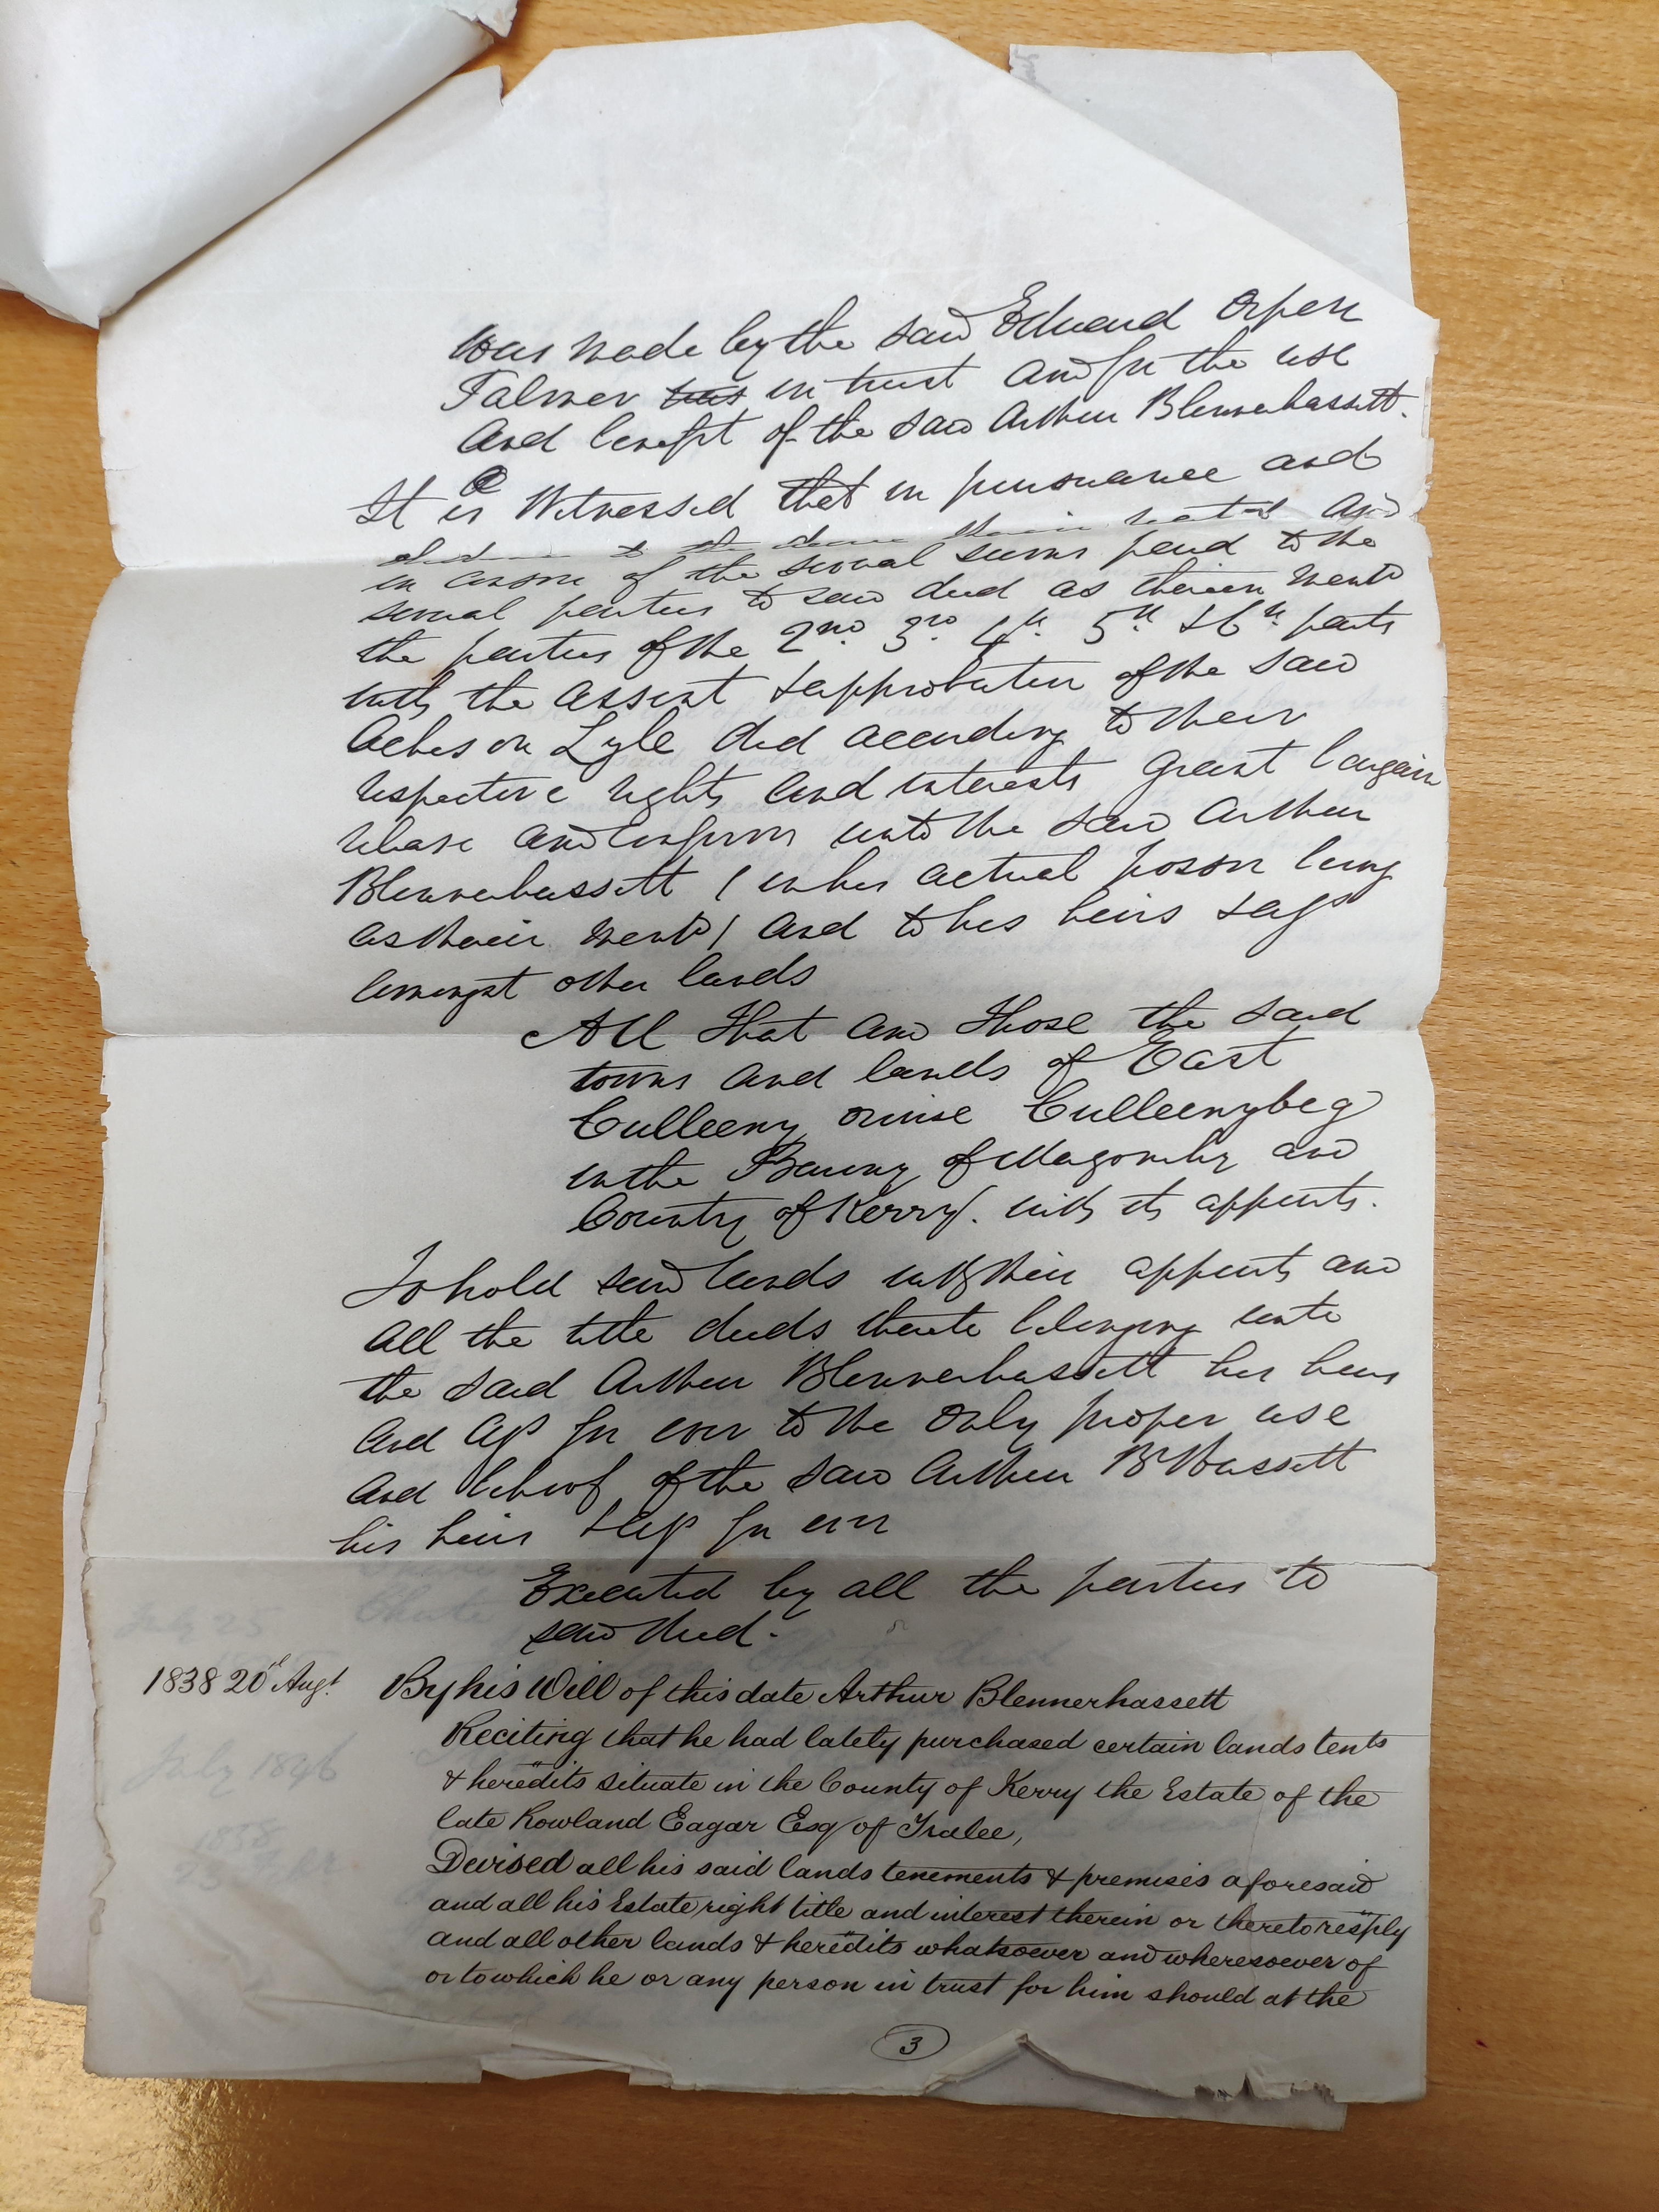 was made by the said Edward Orpen
Palmer in trust and for the use
And benefit of the said Arthur Blennerhassett.
It is Witnessed that in pursuance and
obedience to the decree therein recited And
in conson of the several sums paid to the
several parties to said deed as therein mentd
the parties of the 2nd. 3rd. 4th. 5th & 6th. parts
with the assent & approbation of the said
Acheson Lyle did according to their
respective rights and interests grant bargain
release and confirm unto the said Arthur
Blennerhassett (in his actual posson being
as therein mentd) and to his heirs & ass
amongst other lands
All that and those the said
towns and lands of East
Culleeny orwise Culleenybeg
in the Barony of Magonihy and
County of Kerry. with its appurts.
To hold said lands with their appurts and
all the title deeds thereto belonging unto
the said Arthur Blennerhassett his heirs
And ass for ever to the only proper use
And behoof of the said Arthur BHassett
his heirs & ass for ever
Executed by all the parties to
said deed.
1838 20th Augt. By his Will of this date Arthur Blennerhassett
Reciting that he had lately purchased certain lands tents
& heredits situate in the County of Kerry the Estate of the
late Rowland Eagar Esq of Tralee,
Devised all his said lands tenements & premises aforesaid
and all his Estate right title and interest therein or thereto resply
and all other lands & heredits whatsoever and wheresoever of
or to which he or any person in trust for him should at the
3